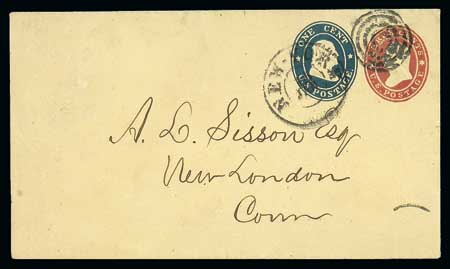 ONE CENT
U.S. POSTAGE
U.S. POSTAGE
NEW
A. L. Sisson Esq
New London
Conn